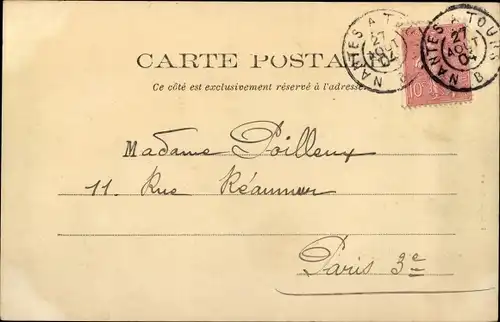 CARTE POSTA
Ce côté est exclusivement réservé à l'adresse
NANTES A TOURS
27
AOUT
04
B
NANTES A TOURS
27
AOUT
04
B
10
Madame Poilleux
11. Rue Réaumur
Paris 3e